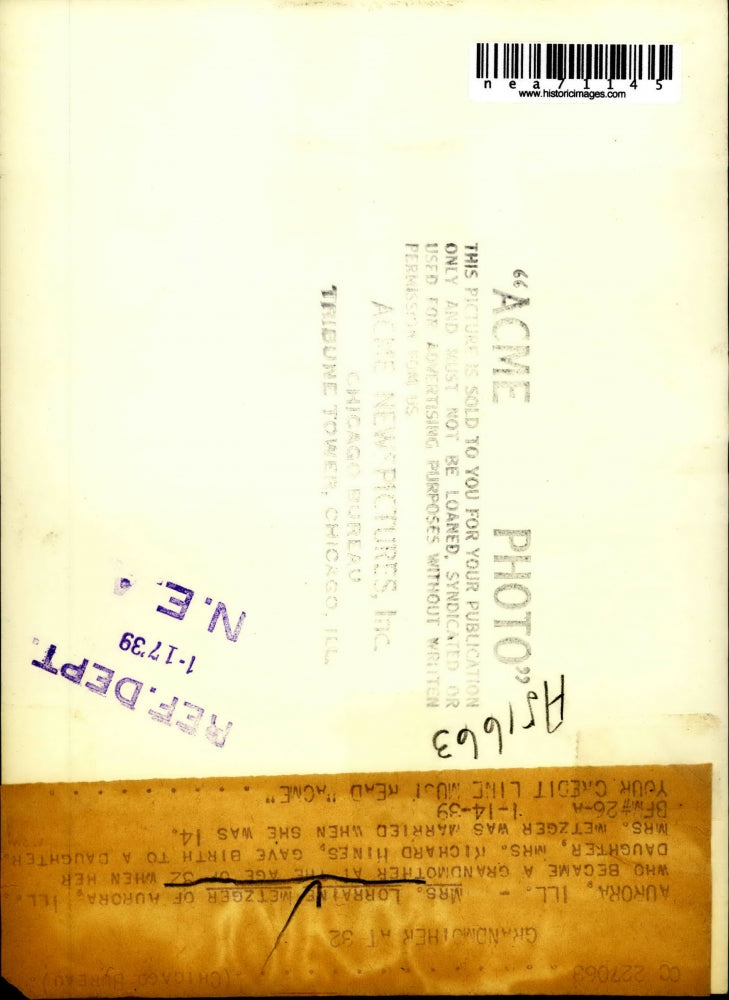 nea71145
www.historicimages.com
"ACME PHOTO"
THIS PICTURE IS SOLD TO YOU FOR YOUR PUBLICATION
ONLY AND MUST NOT BE LOANED, SYNDICATED OR
USED FOR ADVERTISING PURPOSES WITHOUT WRITTEN
PERMISSION FROM US
ACME NEWSPICTURES, Inc.
CHICAGO BUREAU
TRIBUNE TOWER, CHICAGO, ILL.
REF. DEPT.
1-17'39
N.E.A
A51663
CC 227063 (CHICAGO BUREAU)
GRANDMOTHER AT 32
AURORA, ILL. - MRS. LORRAINE METZGER OF AURORA, ILL.
WHO BECAME A GRANDMOTHER AT THE AGE OF 32 WHEN HER
DAUGHTER, MRS. RICHARD HINES, GAVE BIRTH TO A DAUGHTER.
MRS. METZGER WAS MARRIED WHEN SHE WAS 14.
BFM#26-A 1-14-39
YOUR CREDIT LINE MUST READ "ACME"